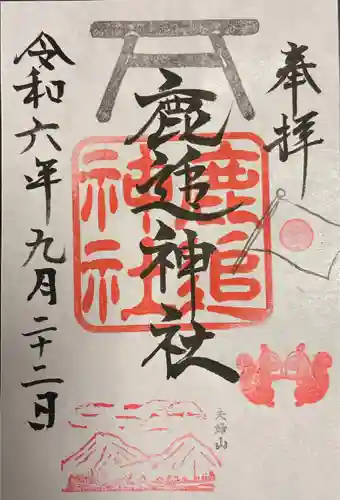 奉拝
鹿追神社
鹿追神社
令和六年九月二十二日
夫婦山